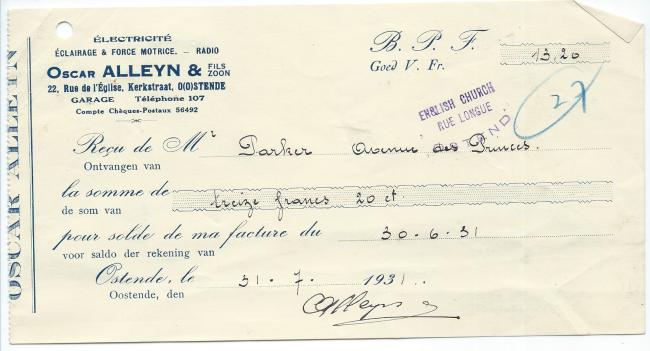 ÉLECTRICITÉ
ÉCLAIRAGE & FORCE MOTRICE. — RADIO
OSCAR ALLEYN & FILS ZOON
22, Rue de l'Église, Kerkstraat, O(O)STENDE
GARAGE Téléphone 107
Compte Chèques-Postaux 56492
B. P. F. 13,20
Goed V. Fr.
27
ENGLISH CHURCH
RUE LONGUE
OSTEND
Reçu de Mr Parker Avenue des Princes.
Ontvangen van
la somme de treize francs 20 ct
de som van
pour solde de ma facture du 30.6.31
voor saldo der rekening van
Ostende, le 31.7. 1931.
Oostende, den
Alleyn
OSCAR ALLEYN